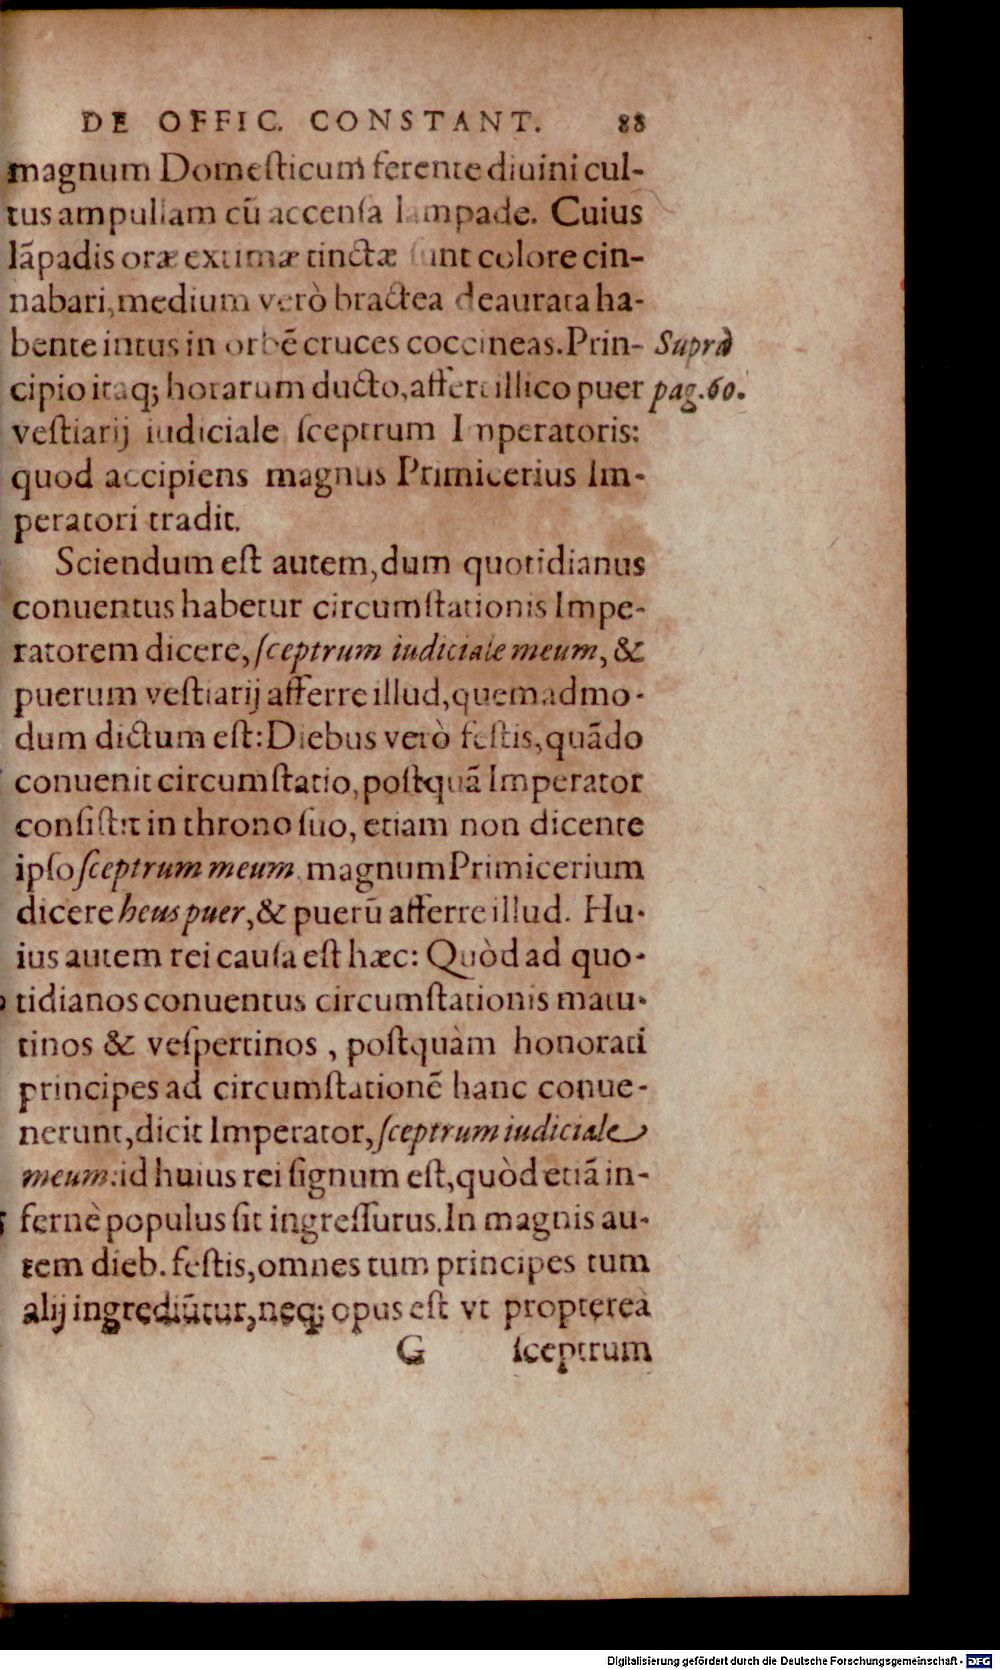 DE OFFIC. CONSTANT. 88
magnum Domeſticum ferente diuini cul-
tus ampullam cū accenſa lampade. Cuius
lāpadis oræ extimæ tinctæ ſunt colore cin-
nabari, medium verò bractea deaurata ha-
bente intus in orbē cruces coccineas. Prin- Suprà
cipio itaq; horarum ducto, affert illico puer pag. 60.
veſtiarij iudiciale ſceptrum Imperatoris:
quod accipiens magnus Primicerius Im-
peratori tradit.
Sciendum eſt autem, dum quotidianus
conuentus habetur circumſtationis Impe-
ratorem dicere, ſceptrum iudiciale meum, &
puerum veſtiarij afferre illud, quemadmo-
dum dictum eſt: Diebus verò feſtis, quādo
conuenit circumſtatio, poſtquā Imperator
conſiſtit in throno ſuo, etiam non dicente
ipſo ſceptrum meum, magnum Primicerium
dicere heus puer, & puerū afferre illud. Hu-
ius autem rei cauſa eſt hæc: Quòd ad quo-
tidianos conuentus circumſtationis matu-
tinos & veſpertinos, poſtquàm honorati
principes ad circumſtationē hanc conue-
nerunt, dicit Imperator, ſceptrum iudiciale
meum: id huius rei ſignum eſt, quòd etiā in-
fernè populus ſit ingreſſurus. In magnis au-
tem dieb. feſtis, omnes tum principes tum
alij ingrediūtur, neq; opus eſt vt proptereà
G ſceptrum
Digitalisierung gefördert durch die Deutsche Forschungsgemeinschaft - DFG